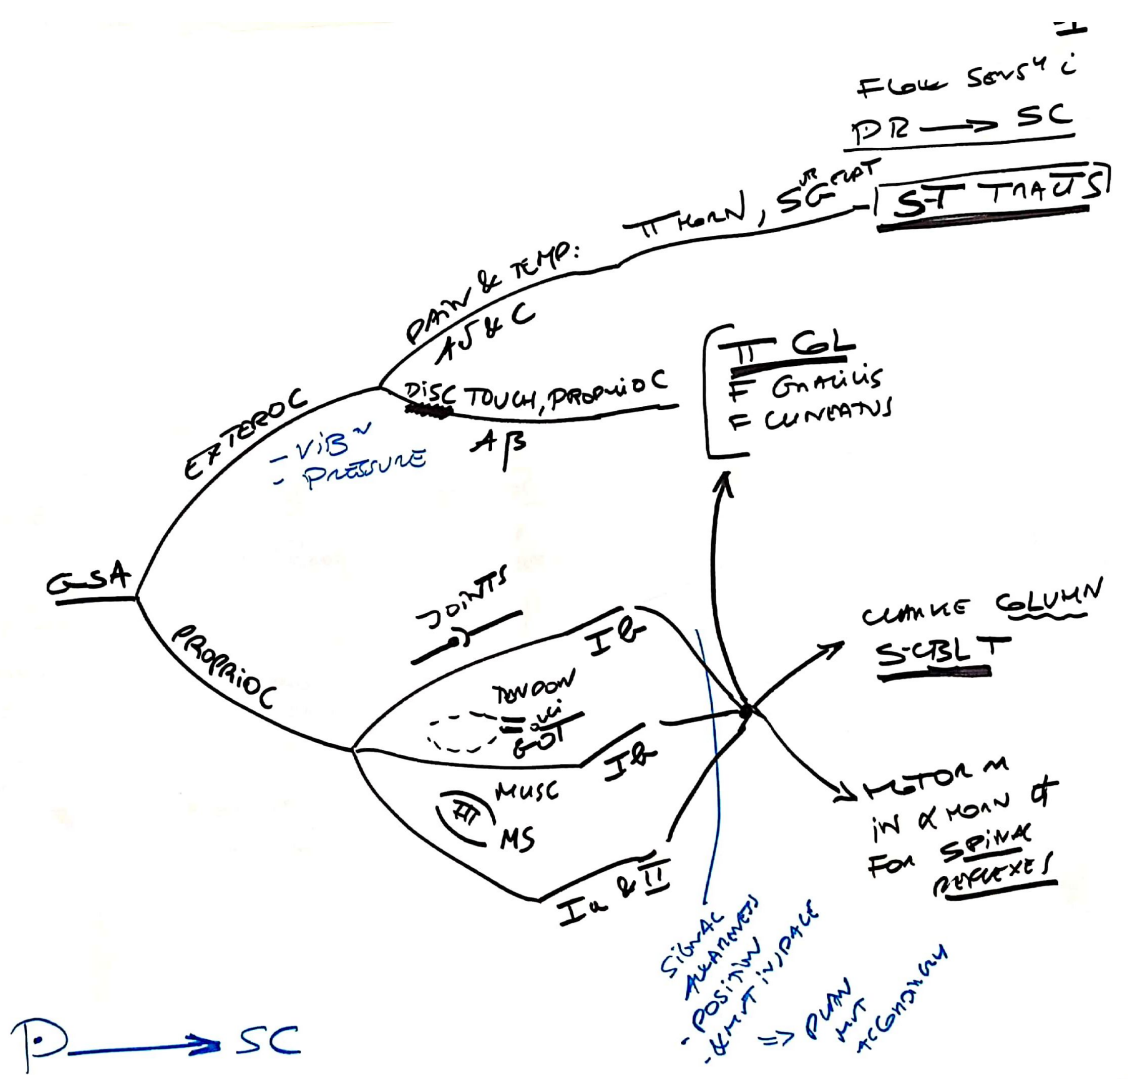 I
FLOW SENSY i
DR → SC
PAIN & TEMP:
Π HORN, SG
S-T TRACTS
Aδ & C
EXTEROC
DISC TOUCH, PROPRIOC
Aβ
- VIBN
- PRESSURE
Π COL
F GRACILIS
F CUNEATUS
GSA
PROPRIOC
JOINTS
Ib
TENDON
GOT
Ib
MUSC
MS
Ia & II
CLARKE COLUMN
S-CBL T
MOTOR N
IN α HORN
FOR SPINAL
REFLEXES
SIGNAL
AWARENESS
- POSITION
- & MVT IN SPACE
=> PLAN
MVT
ACCORDINGLY
P → SC